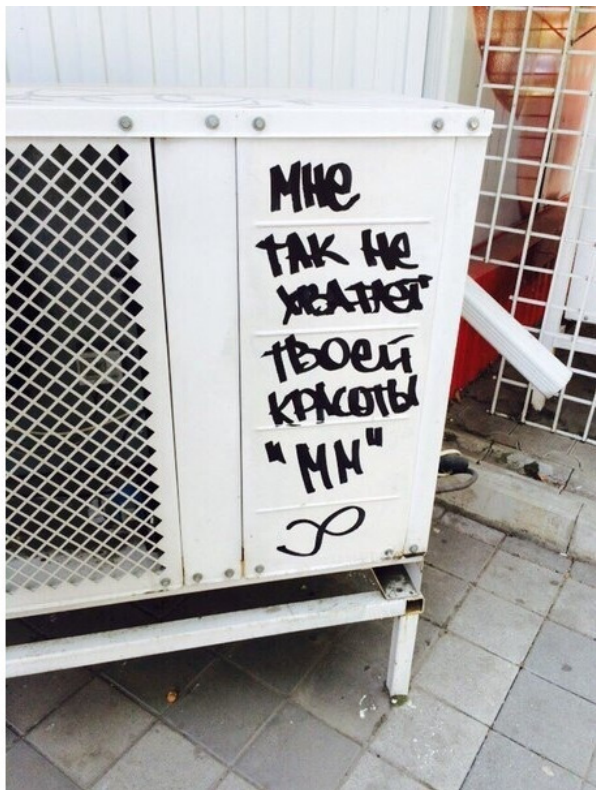 Мне
так не
хватает
твоей
красоты
"ММ"